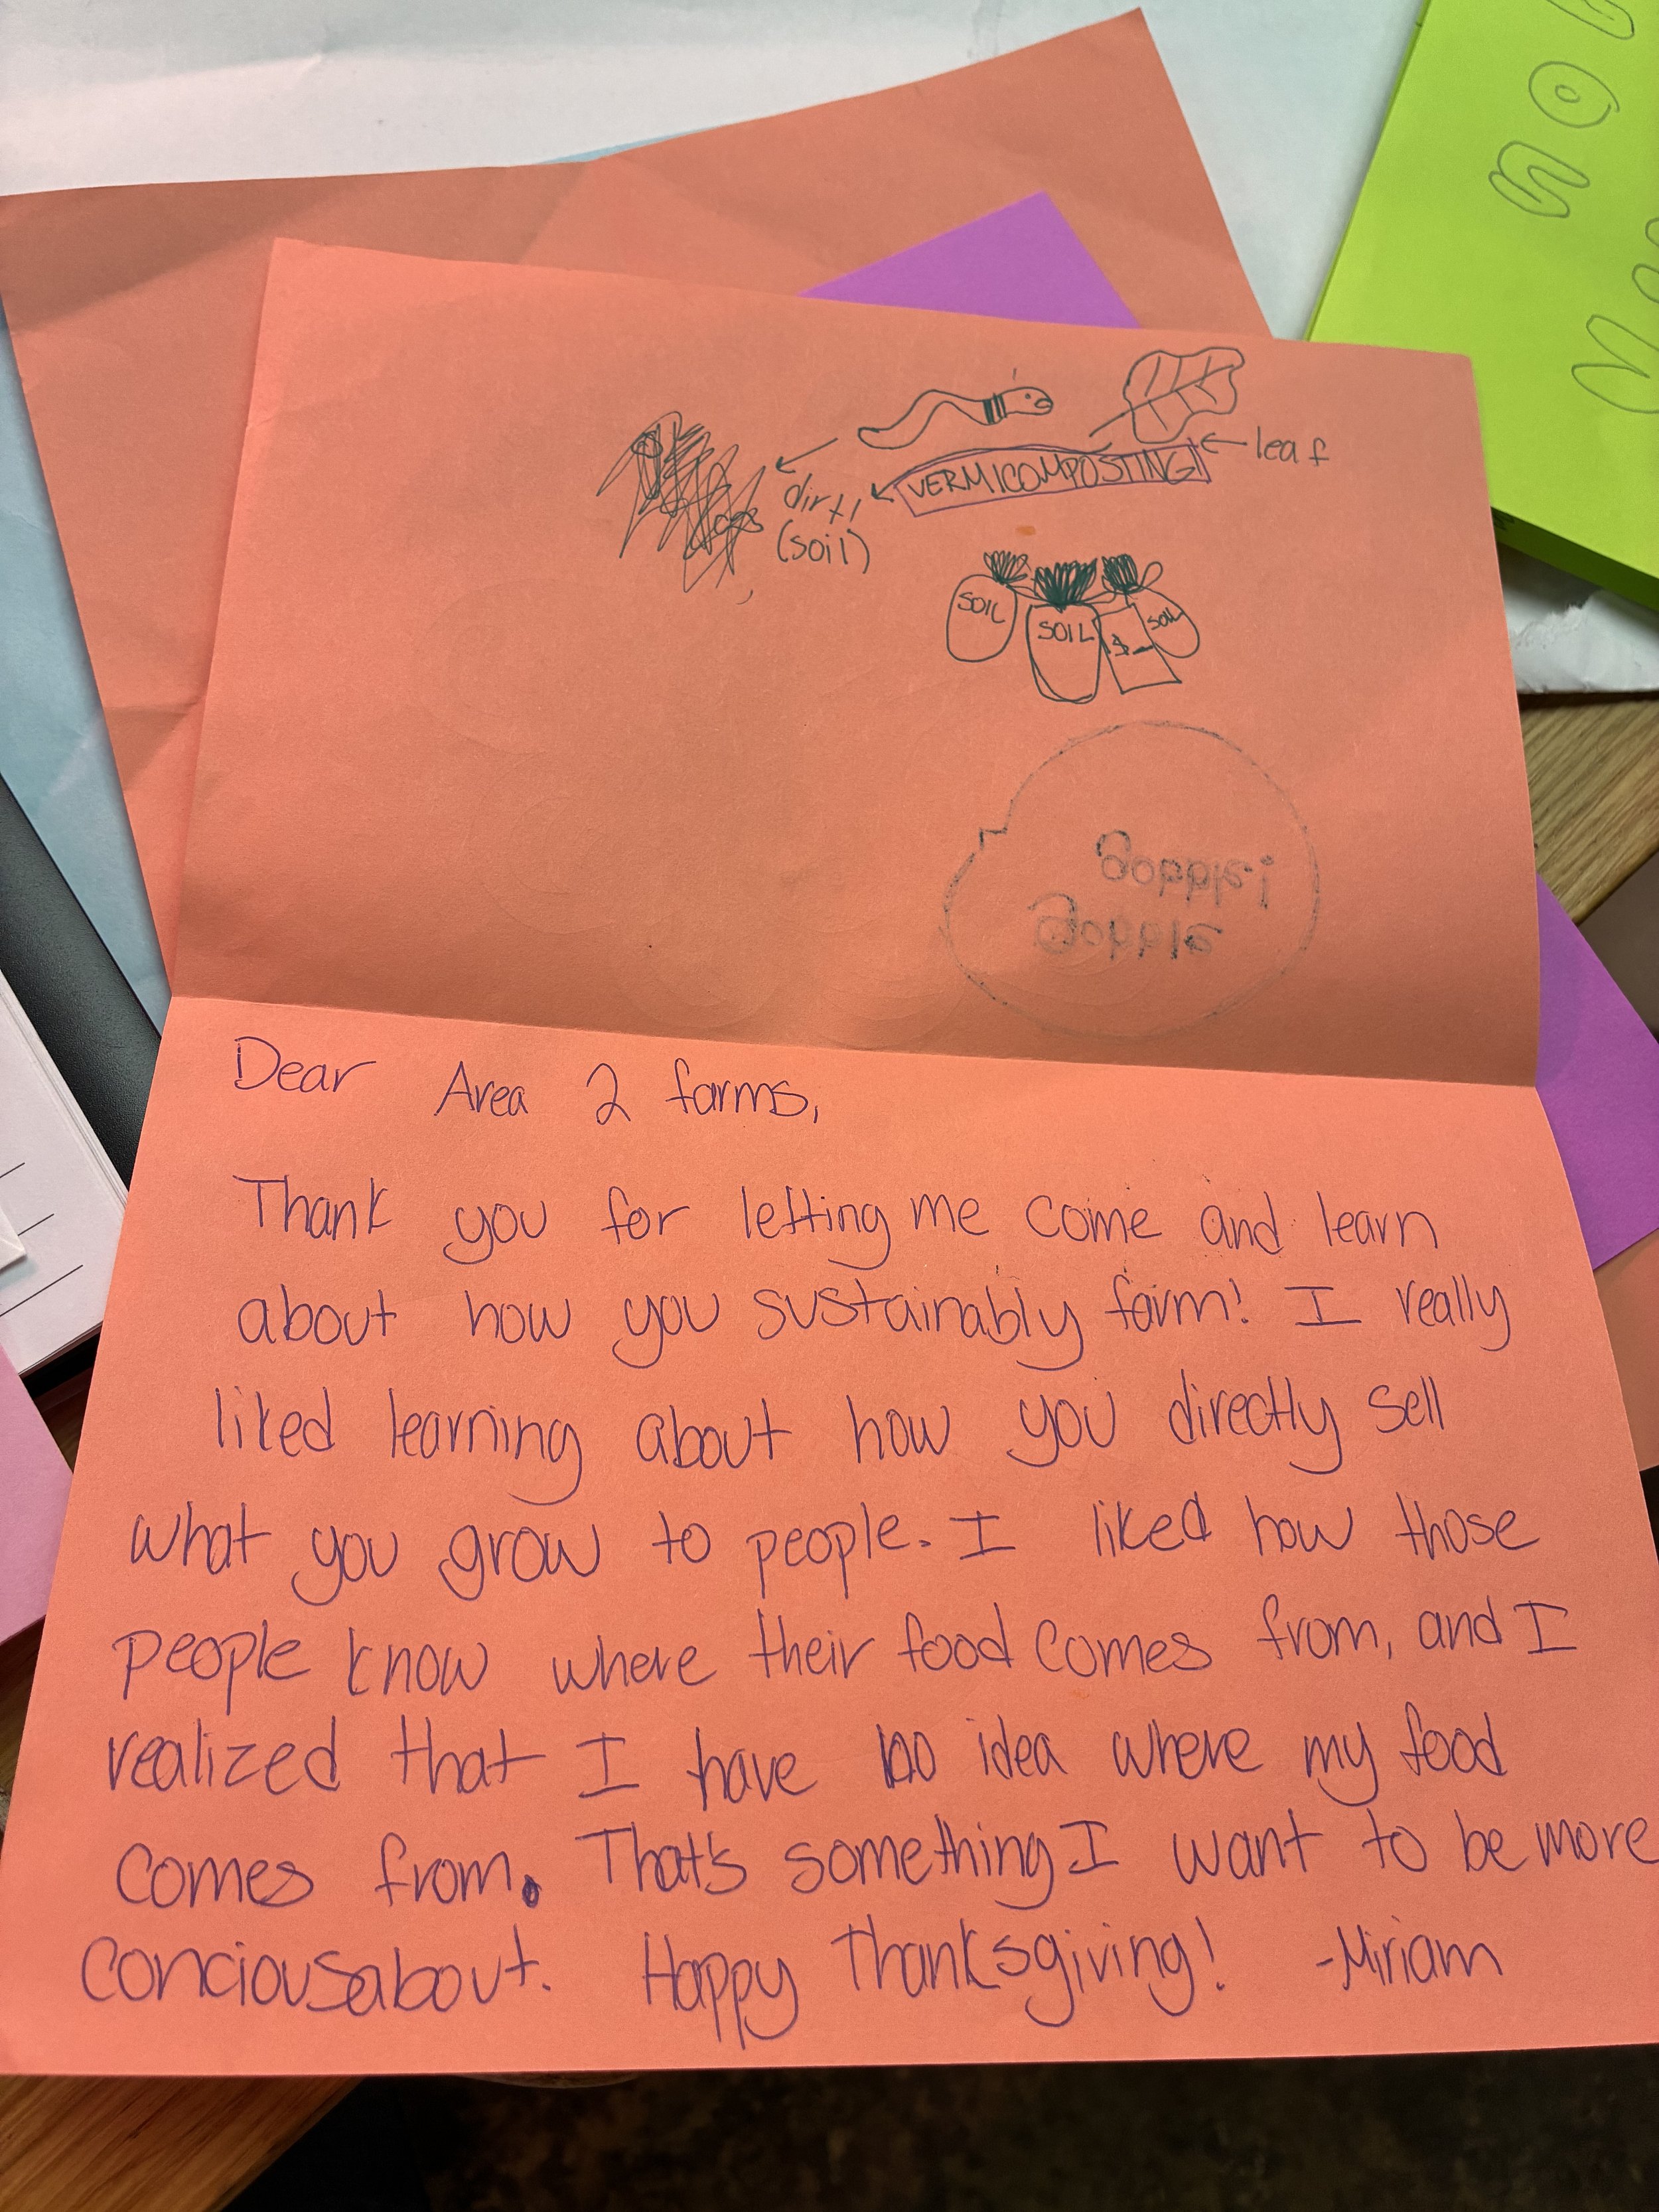 leaf
VERMICOMPOSTING!
dirt!
(soil)
SOIL
SOIL
SOIL
$
Gobble!
Gobble
Dear Area 2 farms,
Thank you for letting me come and learn
about how you sustainably farm! I really
liked learning about how you directly sell
what you grow to people. I liked how those
people know where their food comes from, and I
realized that I have no idea where my food
comes from. That's something I want to be more
conciousabout. Happy Thanksgiving! -Miriam